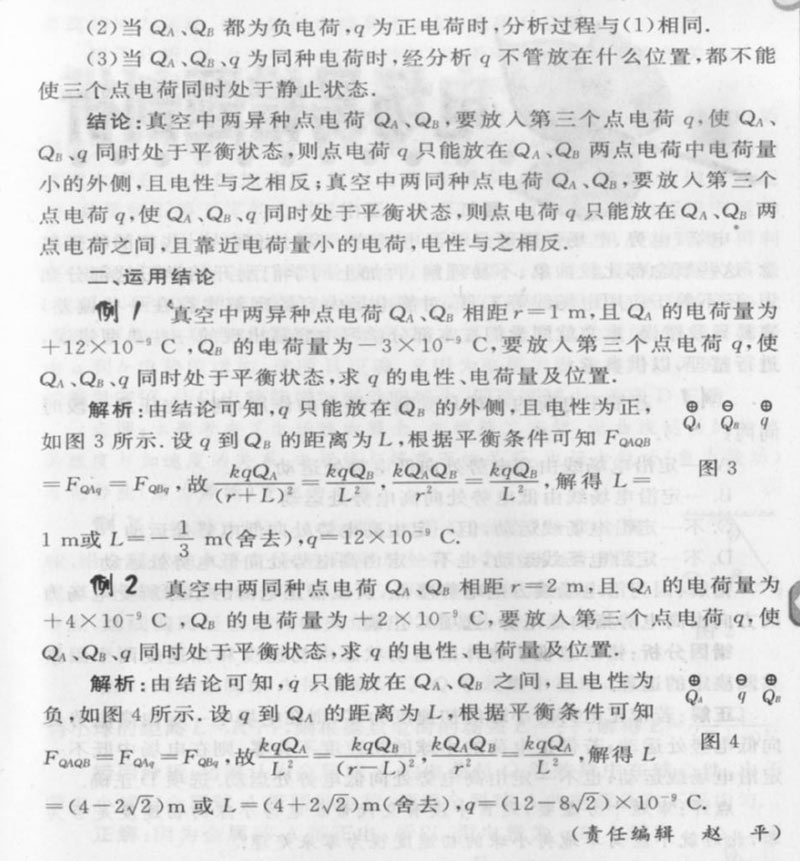 (2)当 QA、QB 都为负电荷,q 为正电荷时,分析过程与(1)相同.
(3)当 QA、QB、q 为同种电荷时,经分析 q 不管放在什么位置,都不能
使三个点电荷同时处于静止状态.
结论:真空中两异种点电荷 QA、QB,要放入第三个点电荷 q,使 QA、
QB、q 同时处于平衡状态,则点电荷 q 只能放在 QA、QB 两点电荷中电荷量
小的外侧,且电性与之相反;真空中两同种点电荷 QA、QB,要放入第三个
点电荷 q,使 QA、QB、q 同时处于平衡状态,则点电荷 q 只能放在 QA、QB 两
点电荷之间,且靠近电荷量小的电荷,电性与之相反.
二、运用结论
例 1 真空中两异种点电荷 QA、QB 相距 r=1 m,且 QA 的电荷量为
+12×10⁻⁹ C,QB 的电荷量为 -3×10⁻⁹ C,要放入第三个点电荷 q,使
QA、QB、q 同时处于平衡状态,求 q 的电性、电荷量及位置.
解析:由结论可知,q 只能放在 QB 的外侧,且电性为正,
如图 3 所示.设 q 到 QB 的距离为 L,根据平衡条件可知 FQAQB
⊕ ⊖ ⊕
QA QB q
图 3
=FQAq=FQBq,故 kqQA/(r+L)²=kqQB/L², kQAQB/r²=kqQB/L²,解得 L=
1 m或 L=-1/3 m(舍去),q=12×10⁻⁹ C.
例 2 真空中两同种点电荷 QA、QB 相距 r=2 m,且 QA 的电荷量为
+4×10⁻⁹ C,QB 的电荷量为 +2×10⁻⁹ C,要放入第三个点电荷 q,使
QA、QB、q 同时处于平衡状态,求 q 的电性、电荷量及位置.
解析:由结论可知,q 只能放在 QA、QB 之间,且电性为
负,如图 4 所示.设 q 到 QA 的距离为 L,根据平衡条件可知
⊕ ⊖ ⊕
QA q QB
图 4
FQAQB=FQAq=FQBq,故 kqQA/L²=kqQB/(r-L)², kQAQB/r²=kqQA/L²,解得 L
=(4-2√2)m 或 L=(4+2√2)m(舍去),q=(12-8√2)×10⁻⁹ C.
(责任编辑 赵 平)